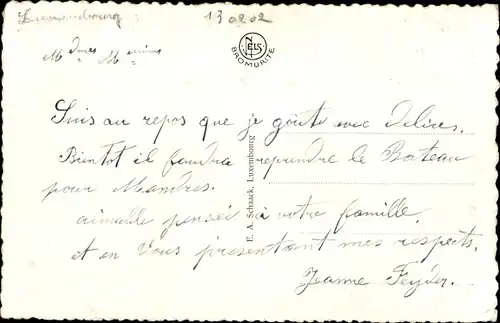 Luxembourg 130202
NELS
BROMURITE
Mdmes M
Suis au repos que je goûte avec Délices.
Bientot il faudra reprendre le Bateau
pour Mandres.
aimable pensée à votre famille,
et en vous présentant mes respects.
Jeanne Feyder.
E. A. Schaack, Luxembourg